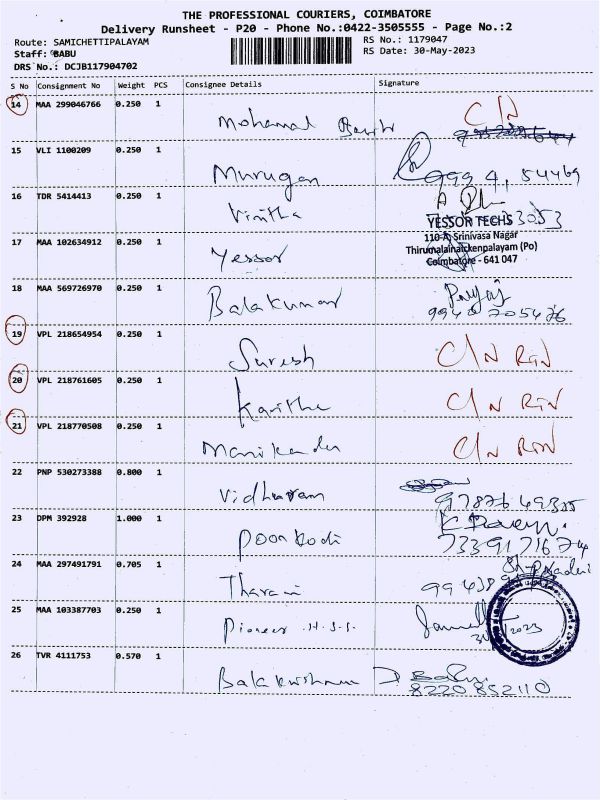 THE PROFESSIONAL COURIERS, COIMBATORE
Delivery Runsheet - P20 - Phone No.:0422-3505555 - Page No.:2
Route: SAMICHETTIPALAYAM RS No.: 1179047
Staff: BABU RS Date: 30-May-2023
DRS No.: DCJB117904702
S No Consignment No Weight PCS Consignee Details Signature
14 MAA 299046766 0.250 1 C/N
Mohamad
15 VLI 1100209 0.250 1
Murugan
16 TDR 5414413 0.250 1
Vinitha 3053
YESSOR TECHS
17 MAA 102634912 0.250 1 110-A, Srinivasa Nagar
Yessor Thirumalainaickenpalayam (Po)
Coimbatore - 641 047
18 MAA 569726970 0.250 1
Balakumar
19 VPL 218654954 0.250 1
Suresh C/N RTN
20 VPL 218761605 0.250 1
Kavitha C/N RTN
21 VPL 218770508 0.250 1
Manikandan C/N RTN
22 PNP 530273388 0.800 1
23 DPM 392928 1.000 1
Poonkodi 7339171674
24 MAA 297491791 0.705 1
Tharani
25 MAA 103387703 0.250 1
Pioneer H.S.S
26 TVR 4111753 0.570 1
8220852110